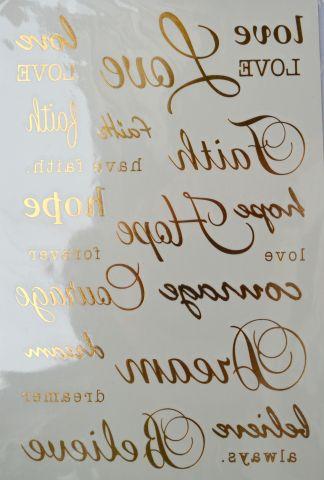 love Love love
LOVE LOVE
Faith faith faith
have faith.
hope Hope hope
love forever
courage Courage
Dream dream
dreamer
believe Believe
always.